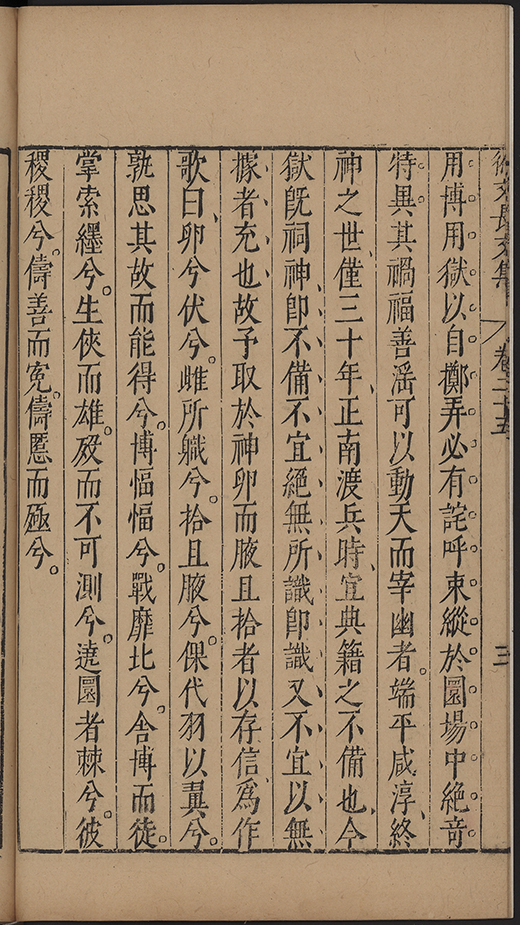 徐文長文集 卷二十五 三
用博用獄以自擲弄必有詫呼束縱於圜場中絕奇
特異其禍福善淫可以動天而宰幽者端平咸淳終
神之世僅三十年正南渡兵時宜典籍之不備也今
獄既祠神卽不備不宜絕無所識卽識又不宜以無
據者充也故予取於神卵而腋且拾者以存信爲作
歌曰卵兮伏兮雌所職兮拾且腋兮保代羽以翼兮
孰思其故而能得兮博愊愊兮戰靡比兮舍博而徒
掌索纆兮生俠而雄歿而不可測兮遶圜者棘兮彼
稷稷兮儔善而寃儔慝而殛兮